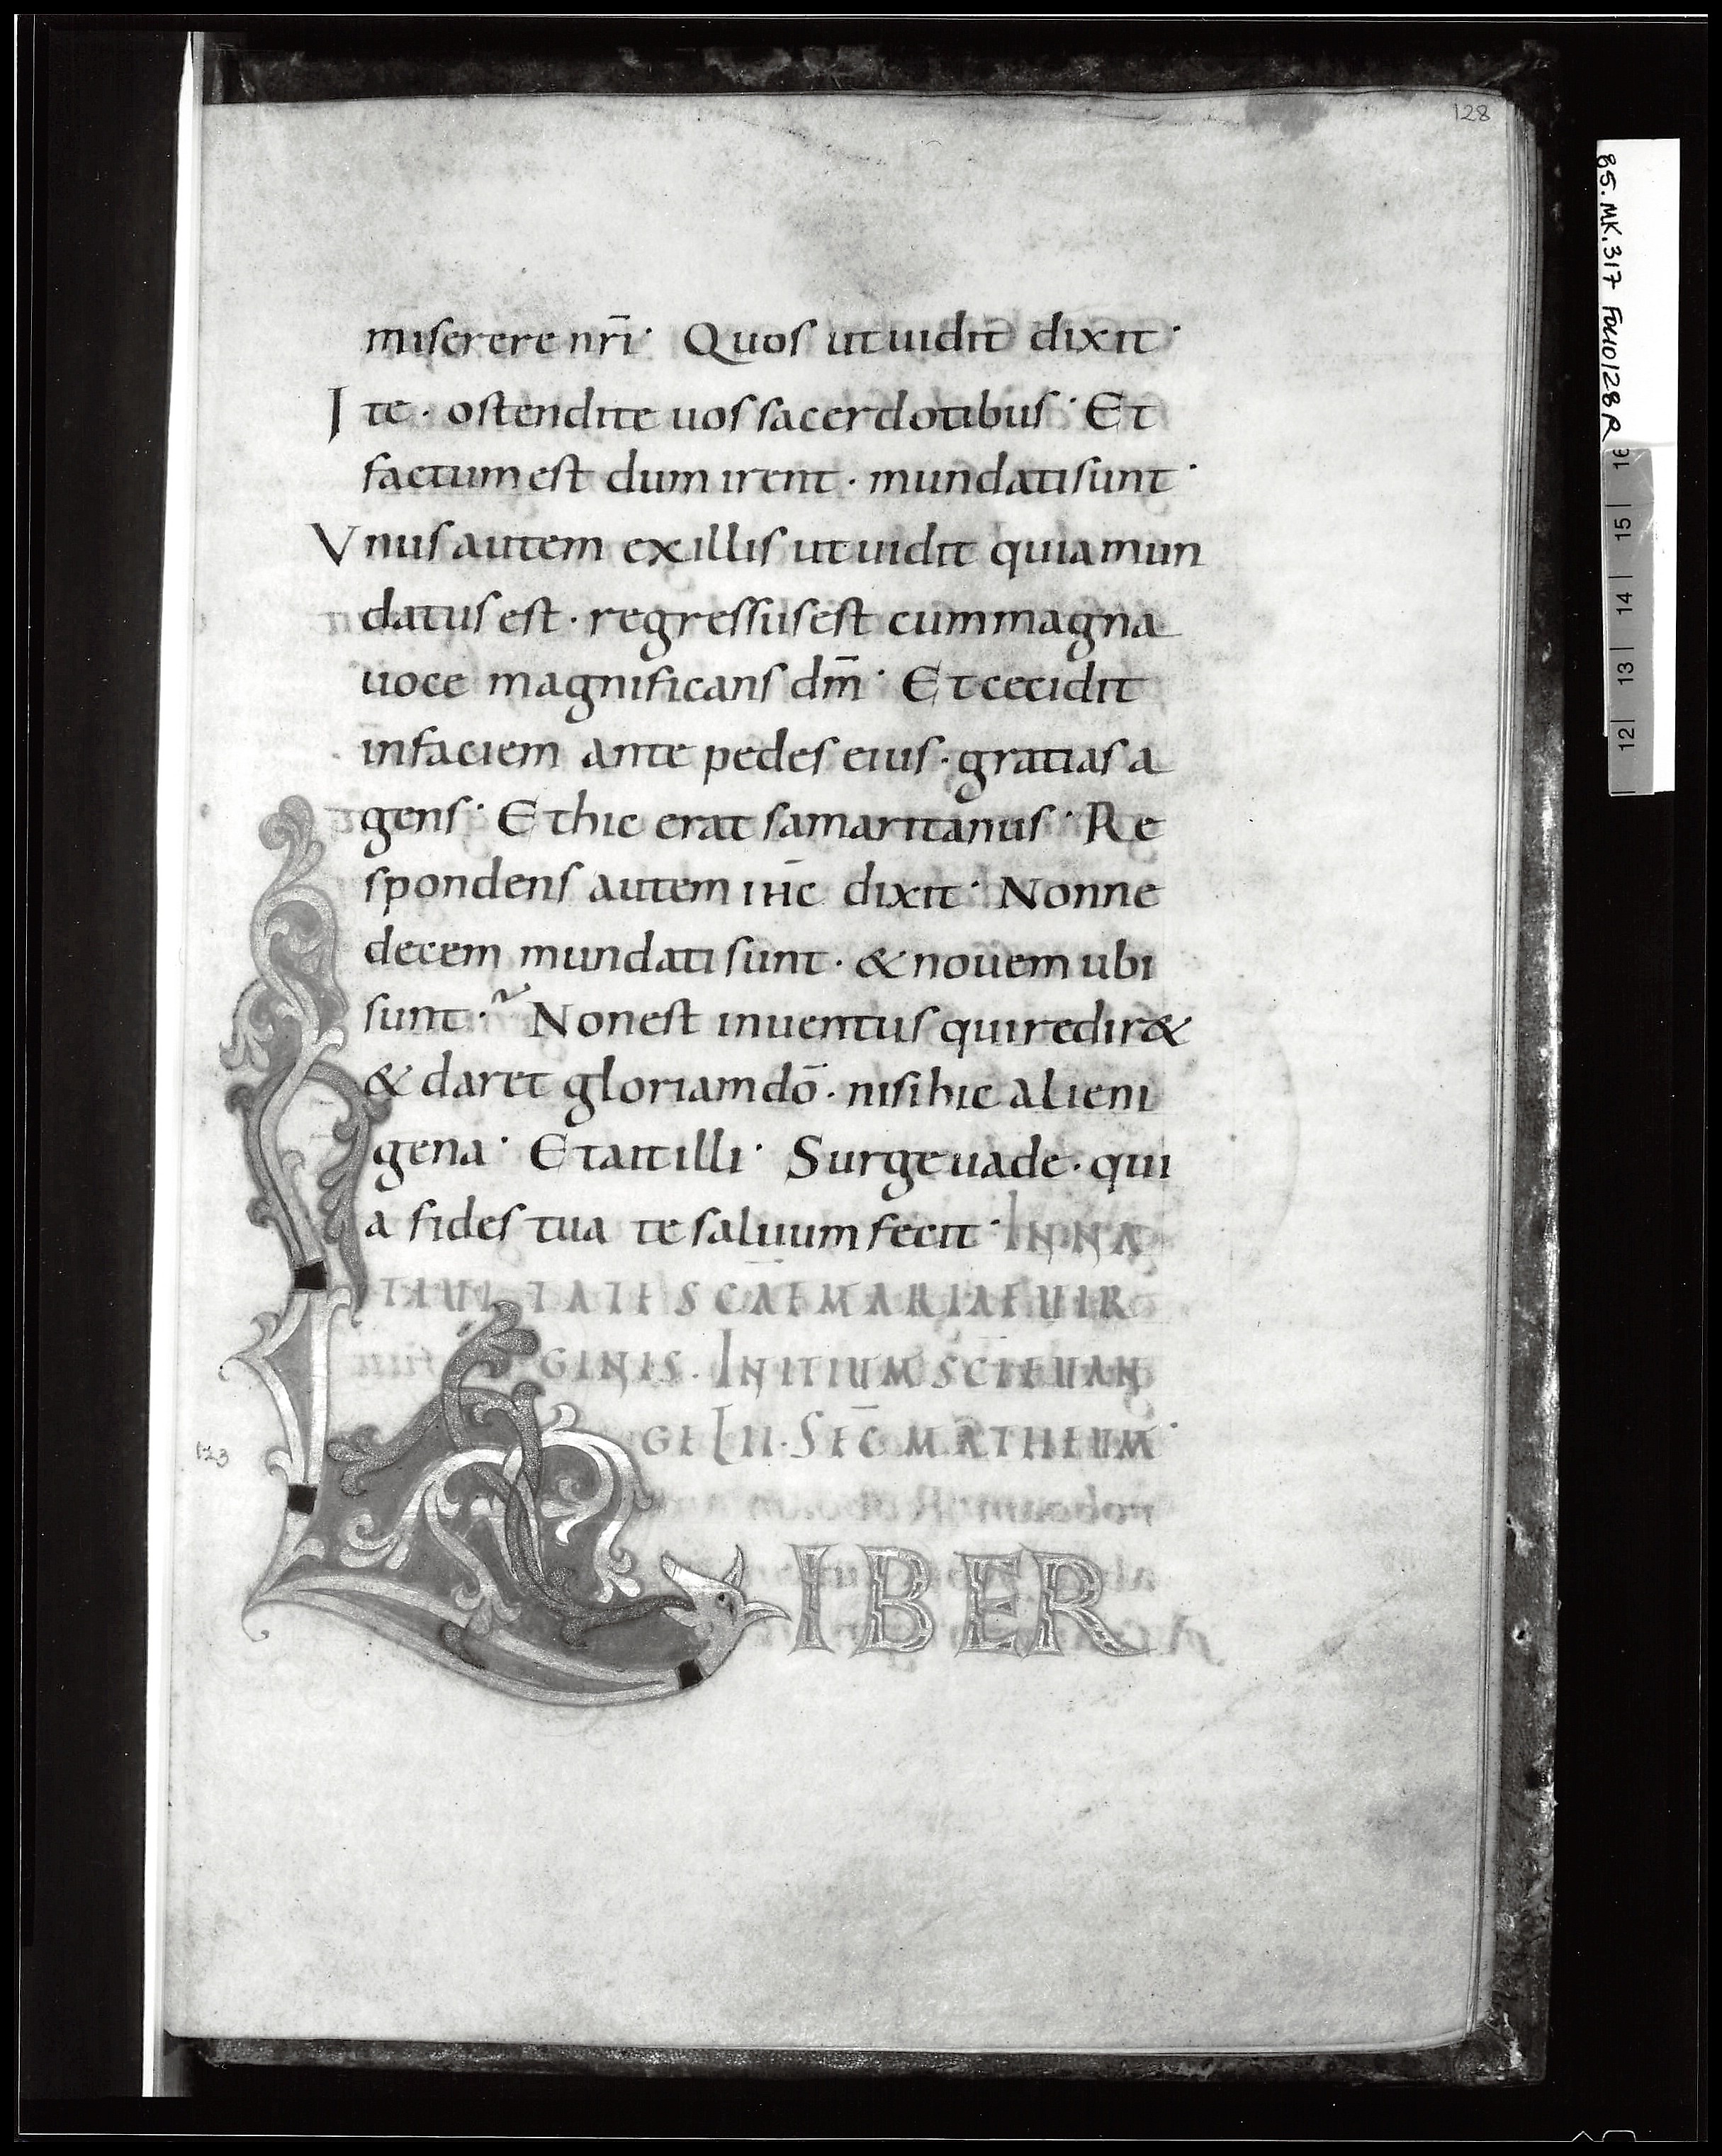 128
miserere nr̄i· Quos ut uidit dixit·
Ite· ostendite uos sacerdotibus· Et
factum est dum irent· mundati sunt·
Vnus autem ex illis ut uidit quia mun
datus est· regressus est cum magna
uoce magnificans dm̄· Et cecidit
in faciem ante pedes eius· gratias a
gens· Et hic erat samaritanus· Re
spondens autem ih̄c dixit· Nonne
decem mundati sunt· & nouem ubi
sunt·~ Non est inuentus qui redir&
& daret gloriam dō· nisi hic alieni
gena· Et ait illi· Surge uade· qui
a fides tua te saluum fecit· IN NA
TIUITATE SCĀE MARIAE UIR
GINIS. INITIUM SCĪ EUAN
GELII· SEC̄ MATHEUM·
123
LIBER
85.MK.317 Folio 128R
12 13 14 15 16